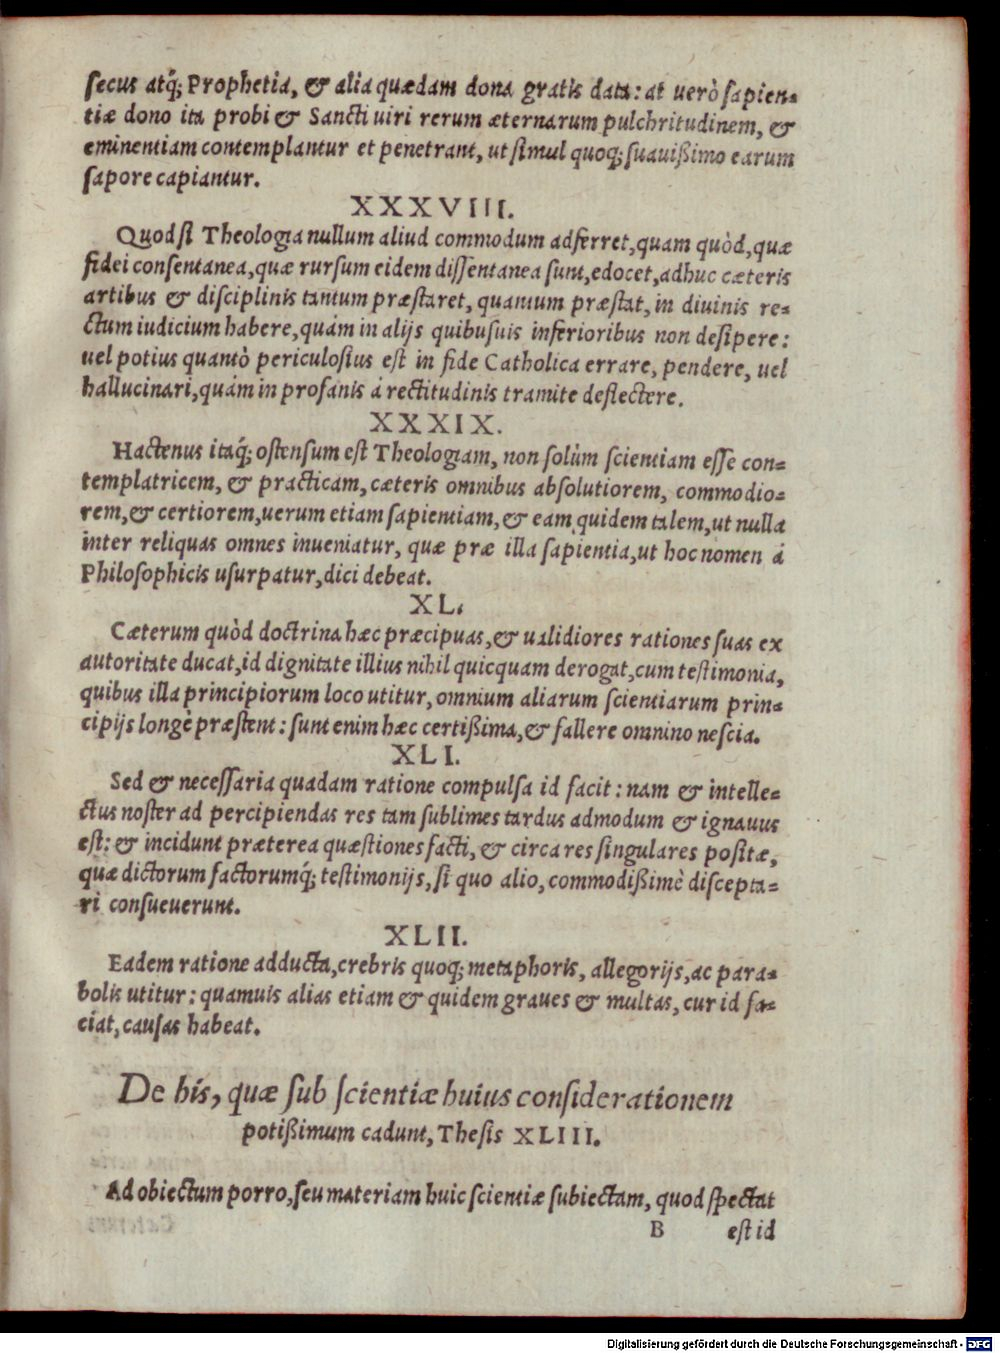 secus atq́; Prophetia, & alia quædam dona gratis data: at uerò sapien-
tiæ dono ita probi & Sancti uiri rerum æternarum pulchritudinem, &
eminentiam contemplantur et penetrant, ut simul quoq; suauißimo earum
sapore capiantur.
XXXVIII.
Quod si Theologia nullum aliud commodum adferret, quam quòd, quæ
fidei consentanea, quæ rursum eidem dissentanea sunt, edocet, adhuc cæteris
artibus & disciplinis tantum præstaret, quantum præstat, in diuinis re-
ctum iudicium habere, quàm in alijs quibusuis inferioribus non desipere:
uel potius quantò periculosius est in fide Catholica errare, pendere, uel
hallucinari, quàm in profanis á rectitudinis tramite deflectere.
XXXIX.
Hactenus itaq́; ostensum est Theologiam, non solùm scientiam esse con-
templatricem, & practicam, cæteris omnibus absolutiorem, commodio-
rem, & certiorem, uerum etiam sapientiam, & eam quidem talem, ut nulla
inter reliquas omnes inueniatur, quæ præ illa sapientia, ut hoc nomen á
Philosophicis usurpatur, dici debeat.
XL.
Cæterum quòd doctrina hæc præcipuas, & ualidiores rationes suas ex
autoritate ducat, id dignitate illius nihil quicquam derogat, cum testimonia,
quibus illa principiorum loco utitur, omnium aliarum scientiarum prin-
cipijs longè præstent: sunt enim hæc certißima, & fallere omnino nescia.
XLI.
Sed & necessaria quadam ratione compulsa id facit: nam & intelle-
ctus noster ad percipiendas res tam sublimes tardus admodum & ignauus
est: & incidunt præterea quæstiones facti, & circa res singulares positæ,
quæ dictorum factorumq́; testimonijs, si quo alio, commodißimè discepta-
ri consueuerunt.
XLII.
Eadem ratione adducta, crebris quoq; metaphoris, allegorijs, ac para-
bolis utitur: quamuis alias etiam & quidem graues & multas, cur id fa-
ciat, causas habeat.
De his, quæ sub scientiæ huius considerationem
potißimum cadunt, Thesis XLIII.
Ad obiectum porro, seu materiam huic scientiæ subiectam, quod spectat
B est id
Digitalisierung gefördert durch die Deutsche Forschungsgemeinschaft - DFG